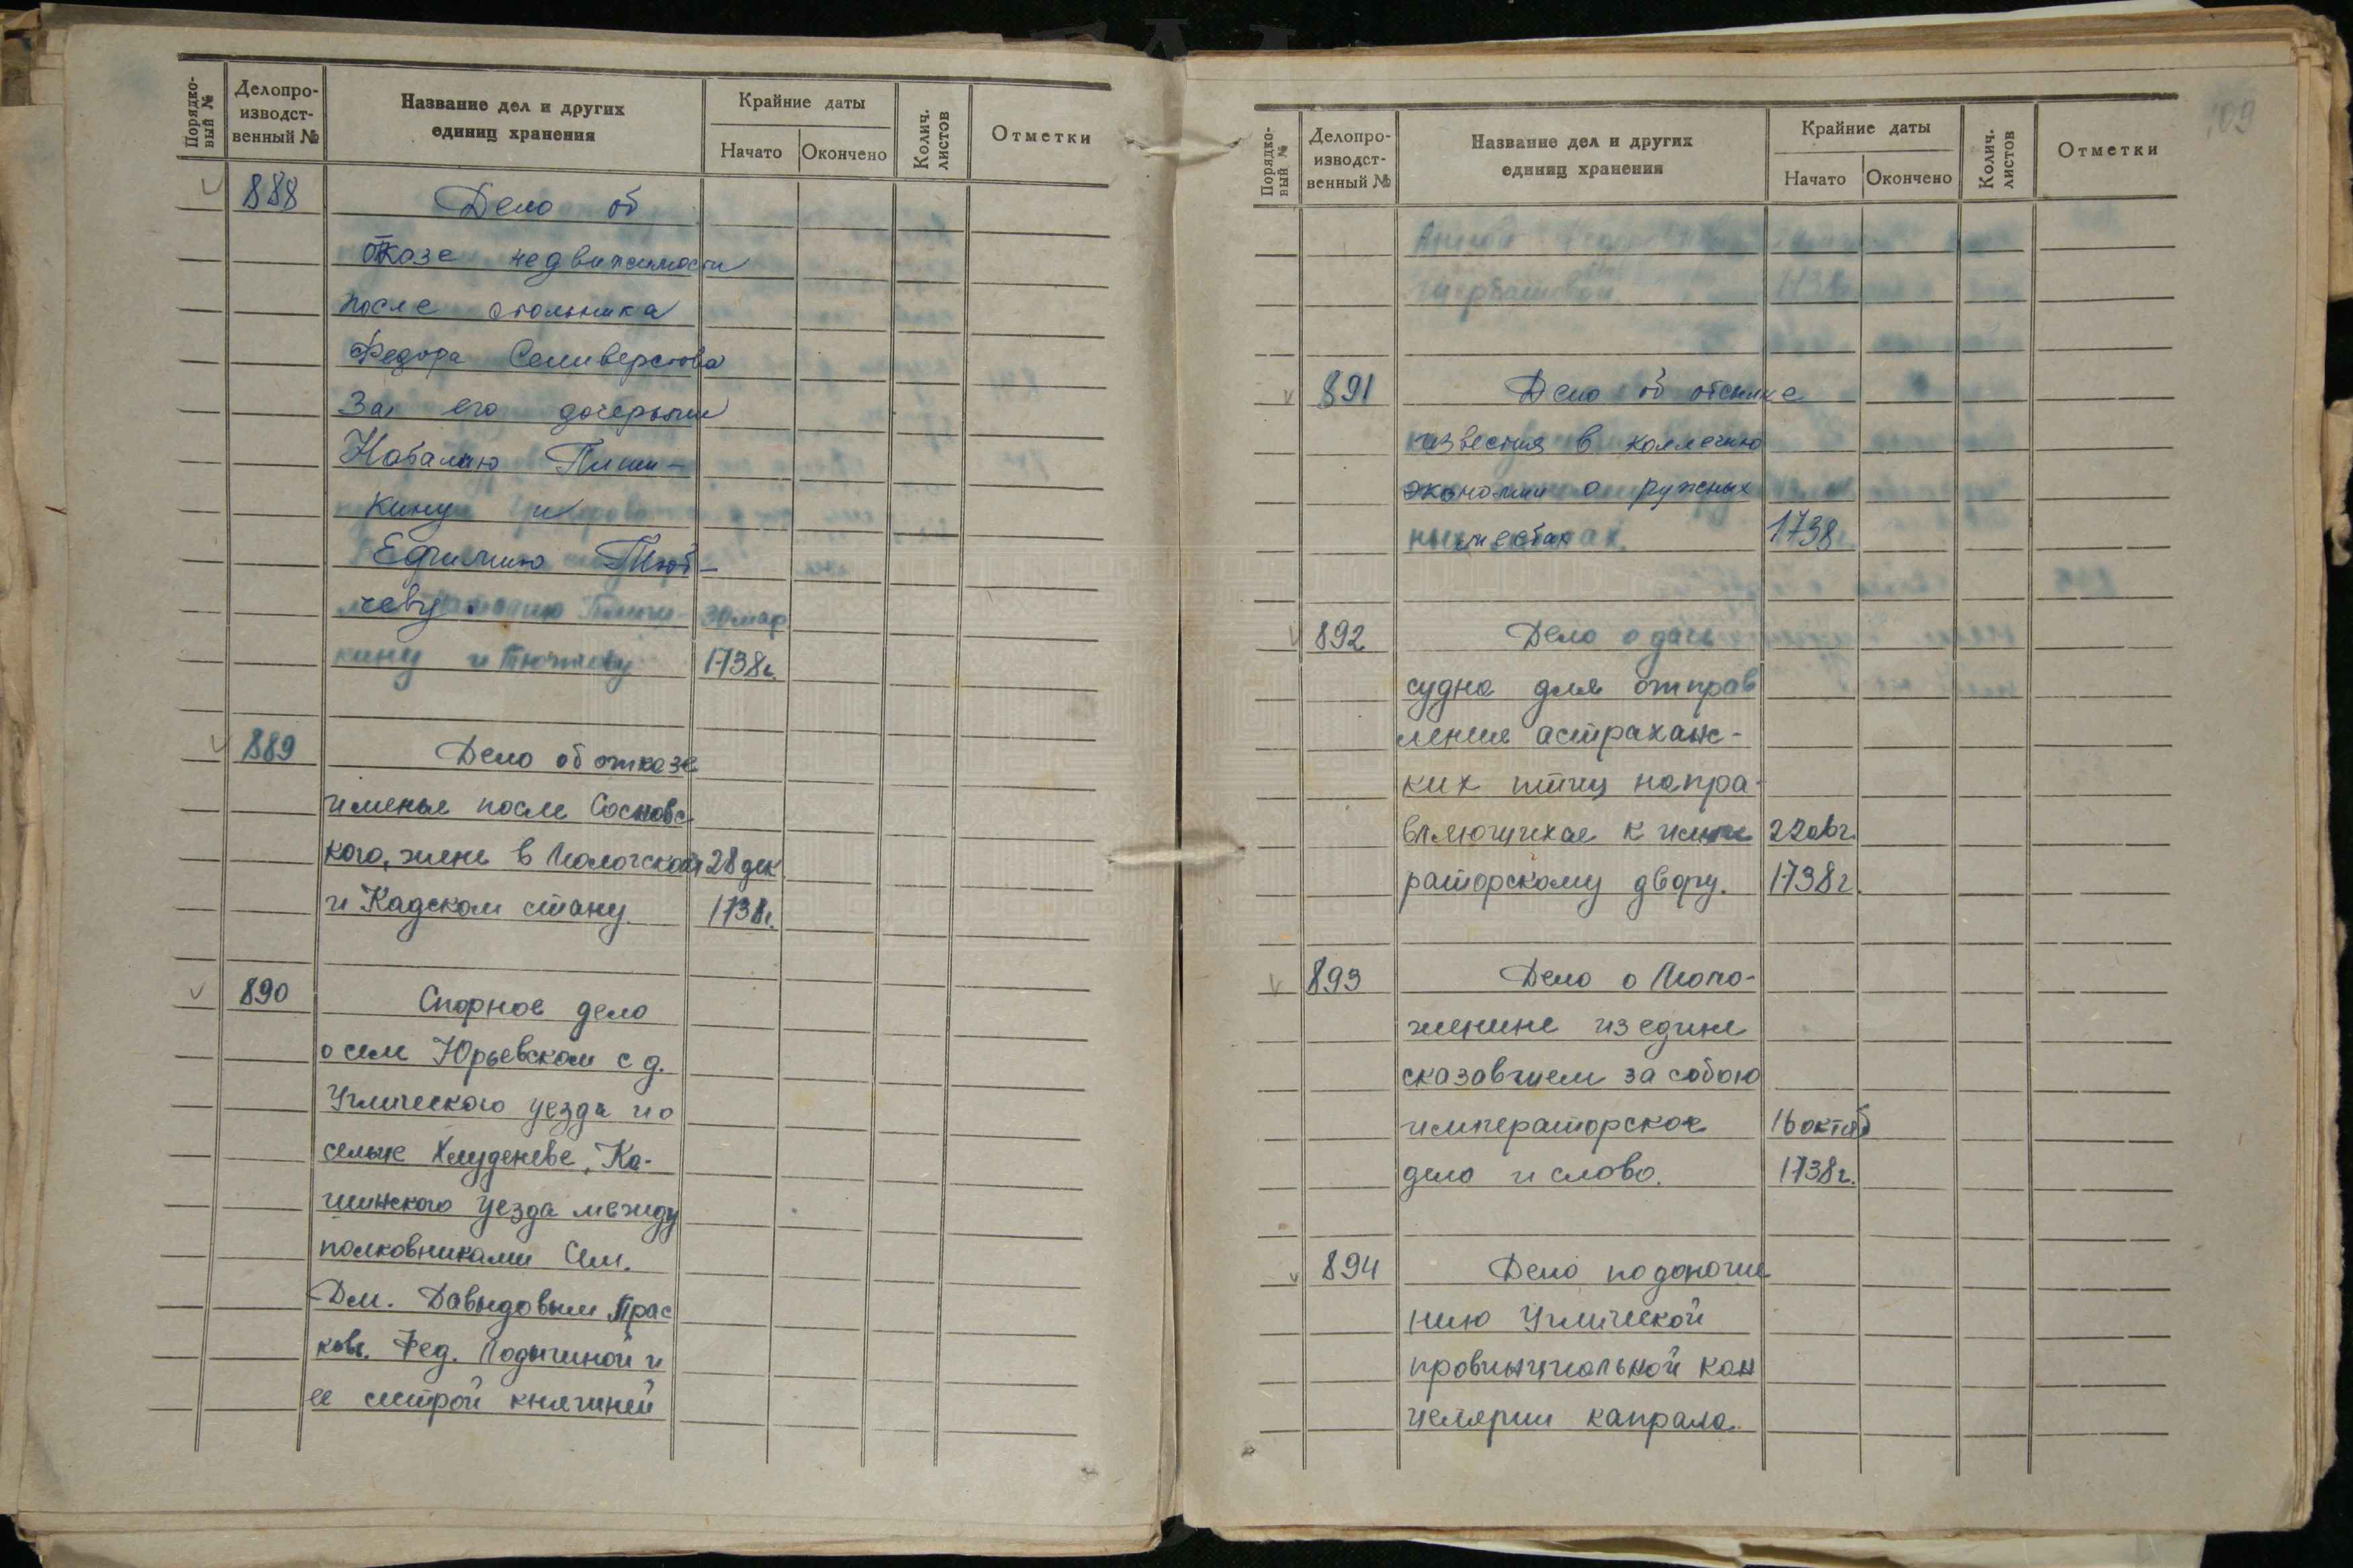 Порядко-
вый №
Делопро-
изводст-
венный №
Название дел и других
единиц хранения
Крайние даты
Начато
Окончено
Колич.
листов
Отметки
888
Дело об
отказе недвижимости
после стольника
Федора Селиверстова
За его дочерьми
Пыш-
кину и
Ефимию Тют-
чеву.
30 мар
кину и Тютчеву 1738г.
889
Дело об отказе
именья после Сосновс
кого, жене в Мологском 28 дек.
и Кадском стану. 1738г.
890
Спорное дело
о селе Юрьевском с д.
Угличского уезда и о
сельце Хлуденеве, Ка-
шинского уезда между
полковниками Сем.
Дм. Давыдовым Прас
ковь. Фед. Лодыгиной и
ее сестрой княгиней
Порядко-
вый №
Делопро-
изводст-
венный №
Название дел и других
единиц хранения
Крайние даты
Начато
Окончено
Колич.
листов
Отметки
109
Щербатовой 1738
891
Дело об отсылке
известия в коллегию
экономии о ружных
местах 1738г.
892
Дело о даче
судна для отправ
ления астраханс-
ких птиц напра-
вляющихся к импе 22 авг.
раторскому двору. 1738г.
893
Дело о Моло-
женине
сказавшем за собою
императорское 16 октяб
дело и слово. 1738г.
894
Дело по доноше
нию Угличской
провинциальной кан
целярии капрала